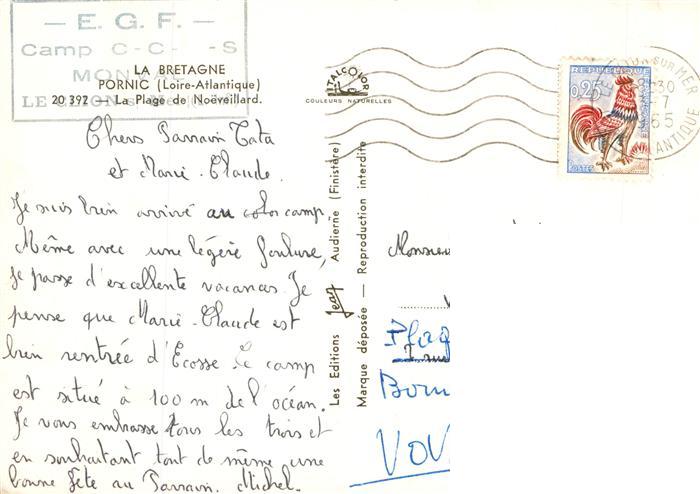 — E. G. F. —
Camp C-C- -S
MON
LE
LA BRETAGNE
PORNIC (Loire-Atlantique)
20 392 — La Plage de Noëveillard.
ITALCOLOR
COULEURS NATURELLES
REPUBLIQUE
0,25
SUR MER
30
7
65
ANTIQUE
Chers Parrain Tata
et Marie-Claude.
Je suis bien arrivé au camp
Même avec une légère foulure,
je passe d'excellente vacances. Je
pense que Marie-Claude est
bien rentrée d'Ecosse. Le camp
est situé à 100 m de l'océan.
Je vous embrasse tous les trois et
en souhaitant tout de même une
bonne fête au Parrain. Michel.
Les Editions Jean Audierne (Finistère)
Marque déposée — Reproduction interdite
Monsieu
VOV